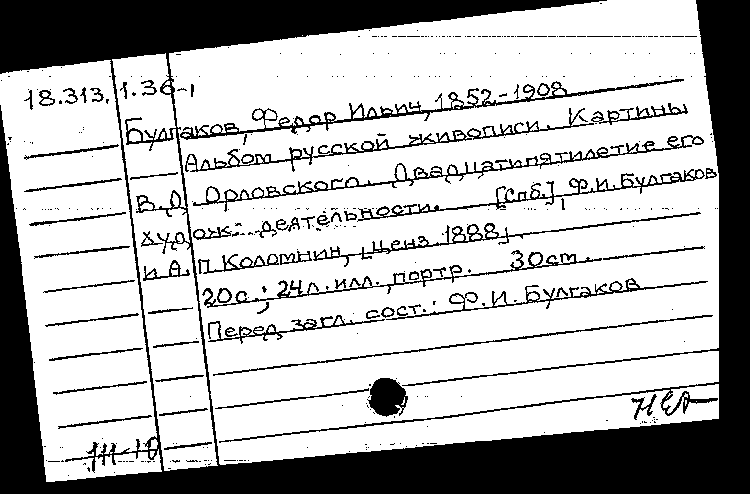 18.313.1.36-1
Булгаков, Федор Ильич, 1852-1908
Альбом русской живописи. Картины
В.Д. Орловского. Двадцатипятилетие его
худож. деятельности. [Спб.], Ф.И.Булгаков
и А.П Коломнин, [ценз. 1888].
20с.; 24л.илл., портр. 30см.
Перед загл. сост.: Ф.И.Булгаков